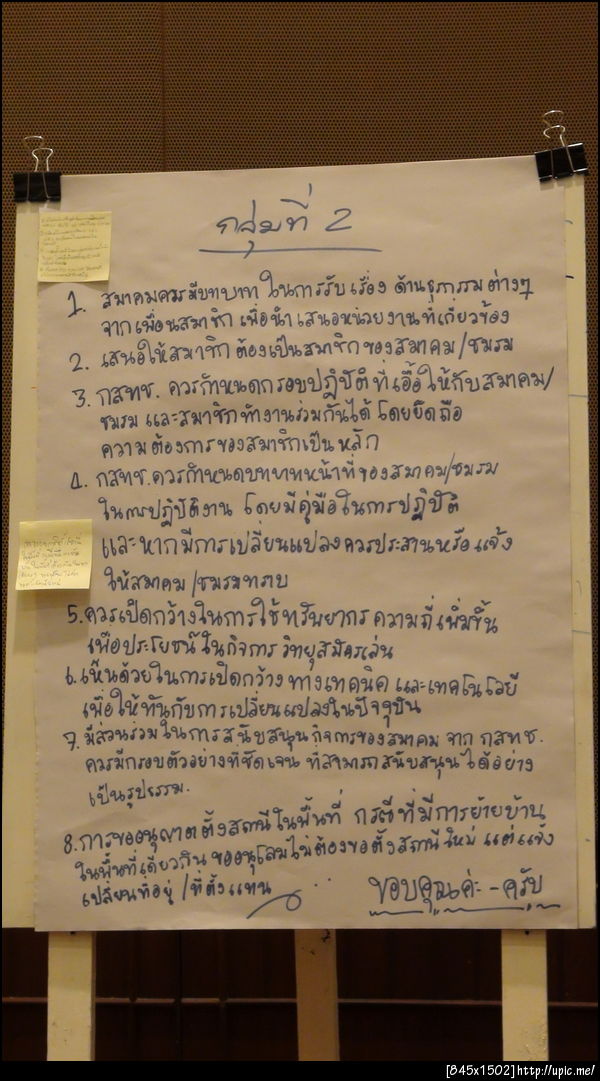 กลุ่มที่ 2
1. สมาคมควรมีบทบาท ในการรับเรื่อง ด้านธุรกรรมต่างๆ
จากเพื่อนสมาชิก เพื่อนำเสนอหน่วยงานที่เกี่ยวข้อง
2. เสนอให้สมาชิกต้องเป็นสมาชิกของสมาคม/ชมรม
3. กสทช. ควรกำหนดกรอบปฏิบัติที่เอื้อให้กับสมาคม/
ชมรม และสมาชิกทำงานร่วมกันได้ โดยยึดถือ
ความต้องการของสมาชิกเป็นหลัก
4. กสทช.ควรกำหนดบทบาทหน้าที่ของสมาคม/ชมรม
ในการปฏิบัติงาน โดยมีคู่มือในการปฏิบัติ
และหากมีการเปลี่ยนแปลงควรประสานหรือแจ้ง
ให้สมาคม/ชมรมทราบ
5. ควรเปิดกว้างในการใช้ทรัพยากรความถี่เพิ่มขึ้น
เพื่อประโยชน์ในกิจการวิทยุสมัครเล่น
6. เห็นด้วยในการเปิดกว้างทางเทคนิค และเทคโนโลยี
เพื่อให้ทันกับการเปลี่ยนแปลงในปัจจุบัน
7. มีส่วนร่วมในการสนับสนุนกิจการของสมาคม จาก กสทช.
ควรมีกรอบตัวอย่างที่ชัดเจน ที่สามารถสนับสนุนได้อย่าง
เป็นรูปธรรม.
8. การขออนุญาตตั้งสถานีในพื้นที่ กรณีที่มีการย้ายบ้าน
ในพื้นที่เดียวกัน ขออนุโลมไม่ต้องขอตั้งสถานีใหม่ แต่แจ้ง
เปลี่ยนที่อยู่/ที่ตั้งแทน
ขอบคุณค่ะ-ครับ
[845x1502]http://upic.me/